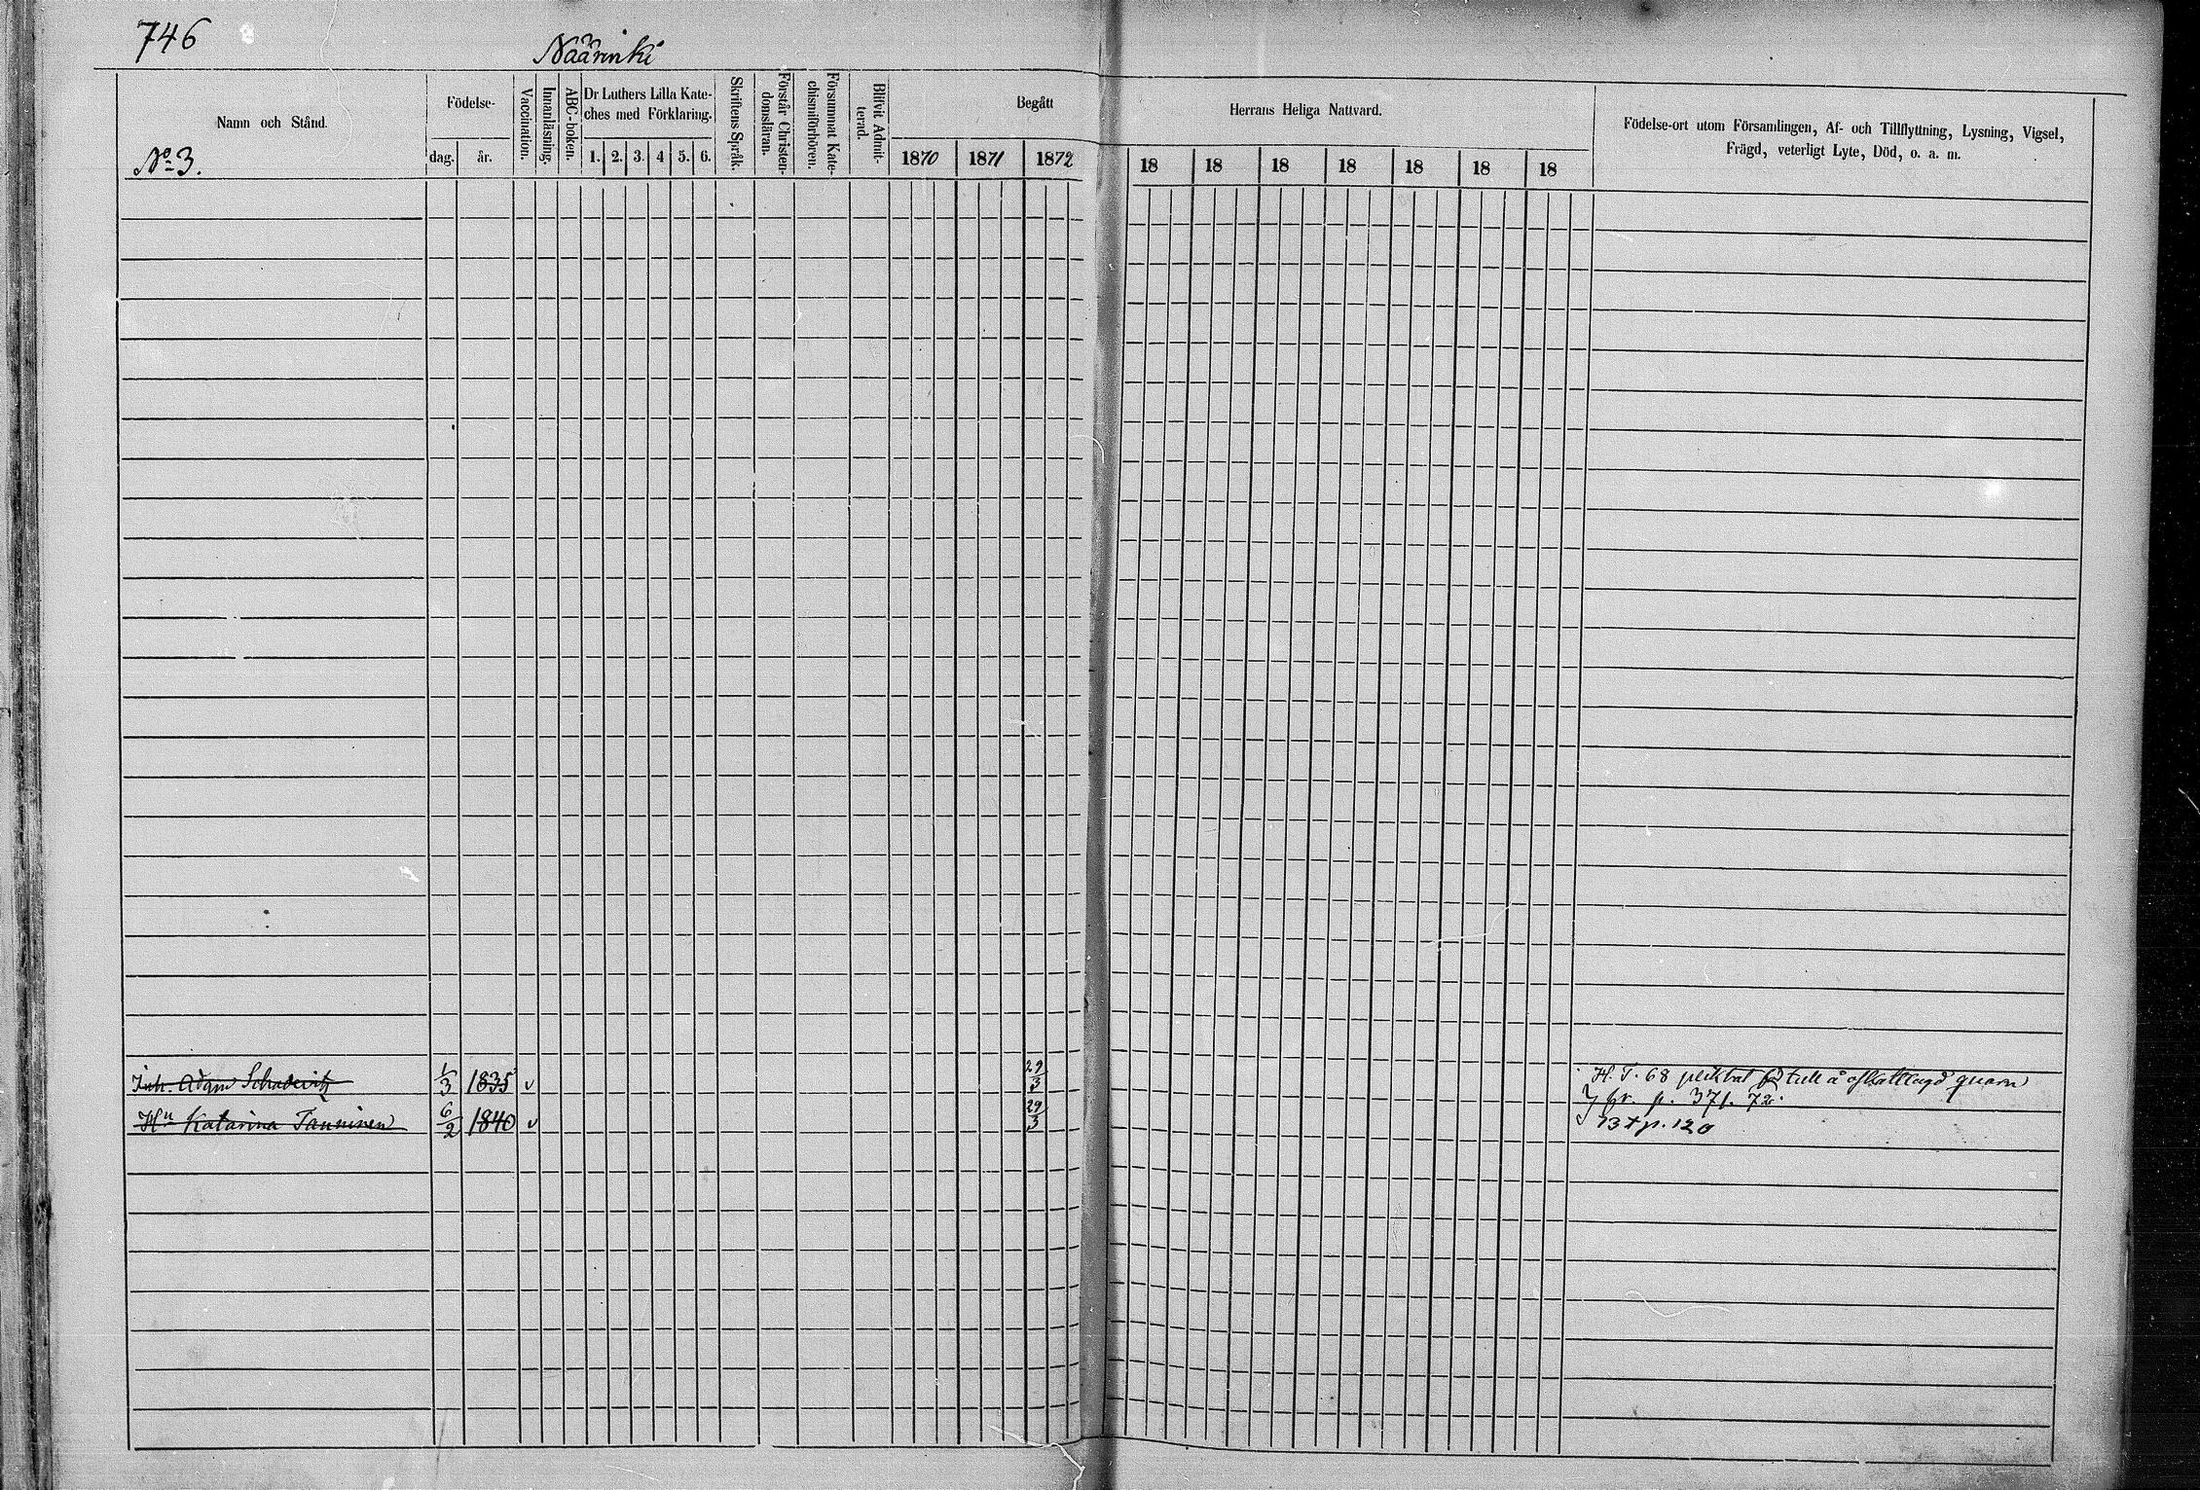 746
Näärinki
Namn och Stånd.
No 3.
Födelse-
dag.
år.
Vaccination.
Innanläsning.
ABC-boken.
Dr Luthers Lilla Kate-
ches med Förklaring.
1. 2. 3. 4 5. 6.
Skriftens Språk.
Förstår Christen-
domsläran.
Försummat Kate-
chismiförhören.
Blifvit Admit-
terad.
Begått
1870 1871 1872
Herrans Heliga Nattvard.
18 18 18 18 18 18 18
Födelse-ort utom Församlingen, Af- och Tillflyttning, Lysning, Vigsel,
Frägd, veterligt Lyte, Död, o. a. m.
Inh. Adam Schadevitz 1/3 1835 v 29/3 H. T. 68 pliktat för å qvarn
fr. p. 371. 72.
Hu Katarina Tanninen 6/2 1840 v 29/3 73 t p. 120